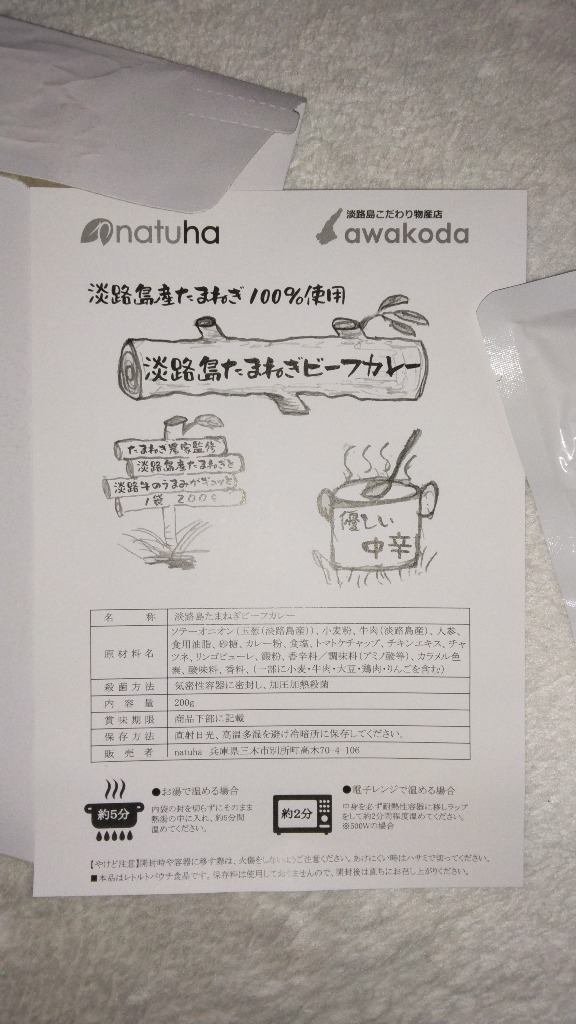 natuha
淡路島こだわり物産店
awakoda
淡路島産たまねぎ100%使用
淡路島たまねぎビーフカレー
たまねぎ農家監修
淡路島産たまねぎと
淡路牛のうまみがギュッと
1袋 200g
優しい
中辛
名称 淡路島たまねぎビーフカレー
原材料名 ソテーオニオン(玉葱(淡路島産))、小麦粉、牛肉(淡路島産)、人参、
食用油脂、砂糖、カレー粉、食塩、トマトケチャップ、チキンエキス、チャ
ツネ、リンゴピューレ、澱粉、香辛料/調味料(アミノ酸等)、カラメル色
素、酸味料、香料、(一部に小麦・牛肉・大豆・鶏肉・りんごを含む)
殺菌方法 気密性容器に密封し、加圧加熱殺菌
内容量 200g
賞味期限 商品下部に記載
保存方法 直射日光、高温多湿を避け冷暗所に保存してください。
販売者 natuha 兵庫県三木市別所町高木70-4-106
約5分
●お湯で温める場合
内袋の封を切らずにそのまま
熱湯の中に入れ、約5分間
温めてください。
約2分
●電子レンジで温める場合
中身を必ず耐熱性容器に移しラップ
をして約2分間程度温めてください。
※500Wの場合
【やけど注意】開封時や容器に移す際は、火傷をしないようご注意ください。あけにくい時はハサミで切ってください。
■本品はレトルトパウチ食品です。保存料は使用しておりませんので、開封後は直ちにお召し上がりください。